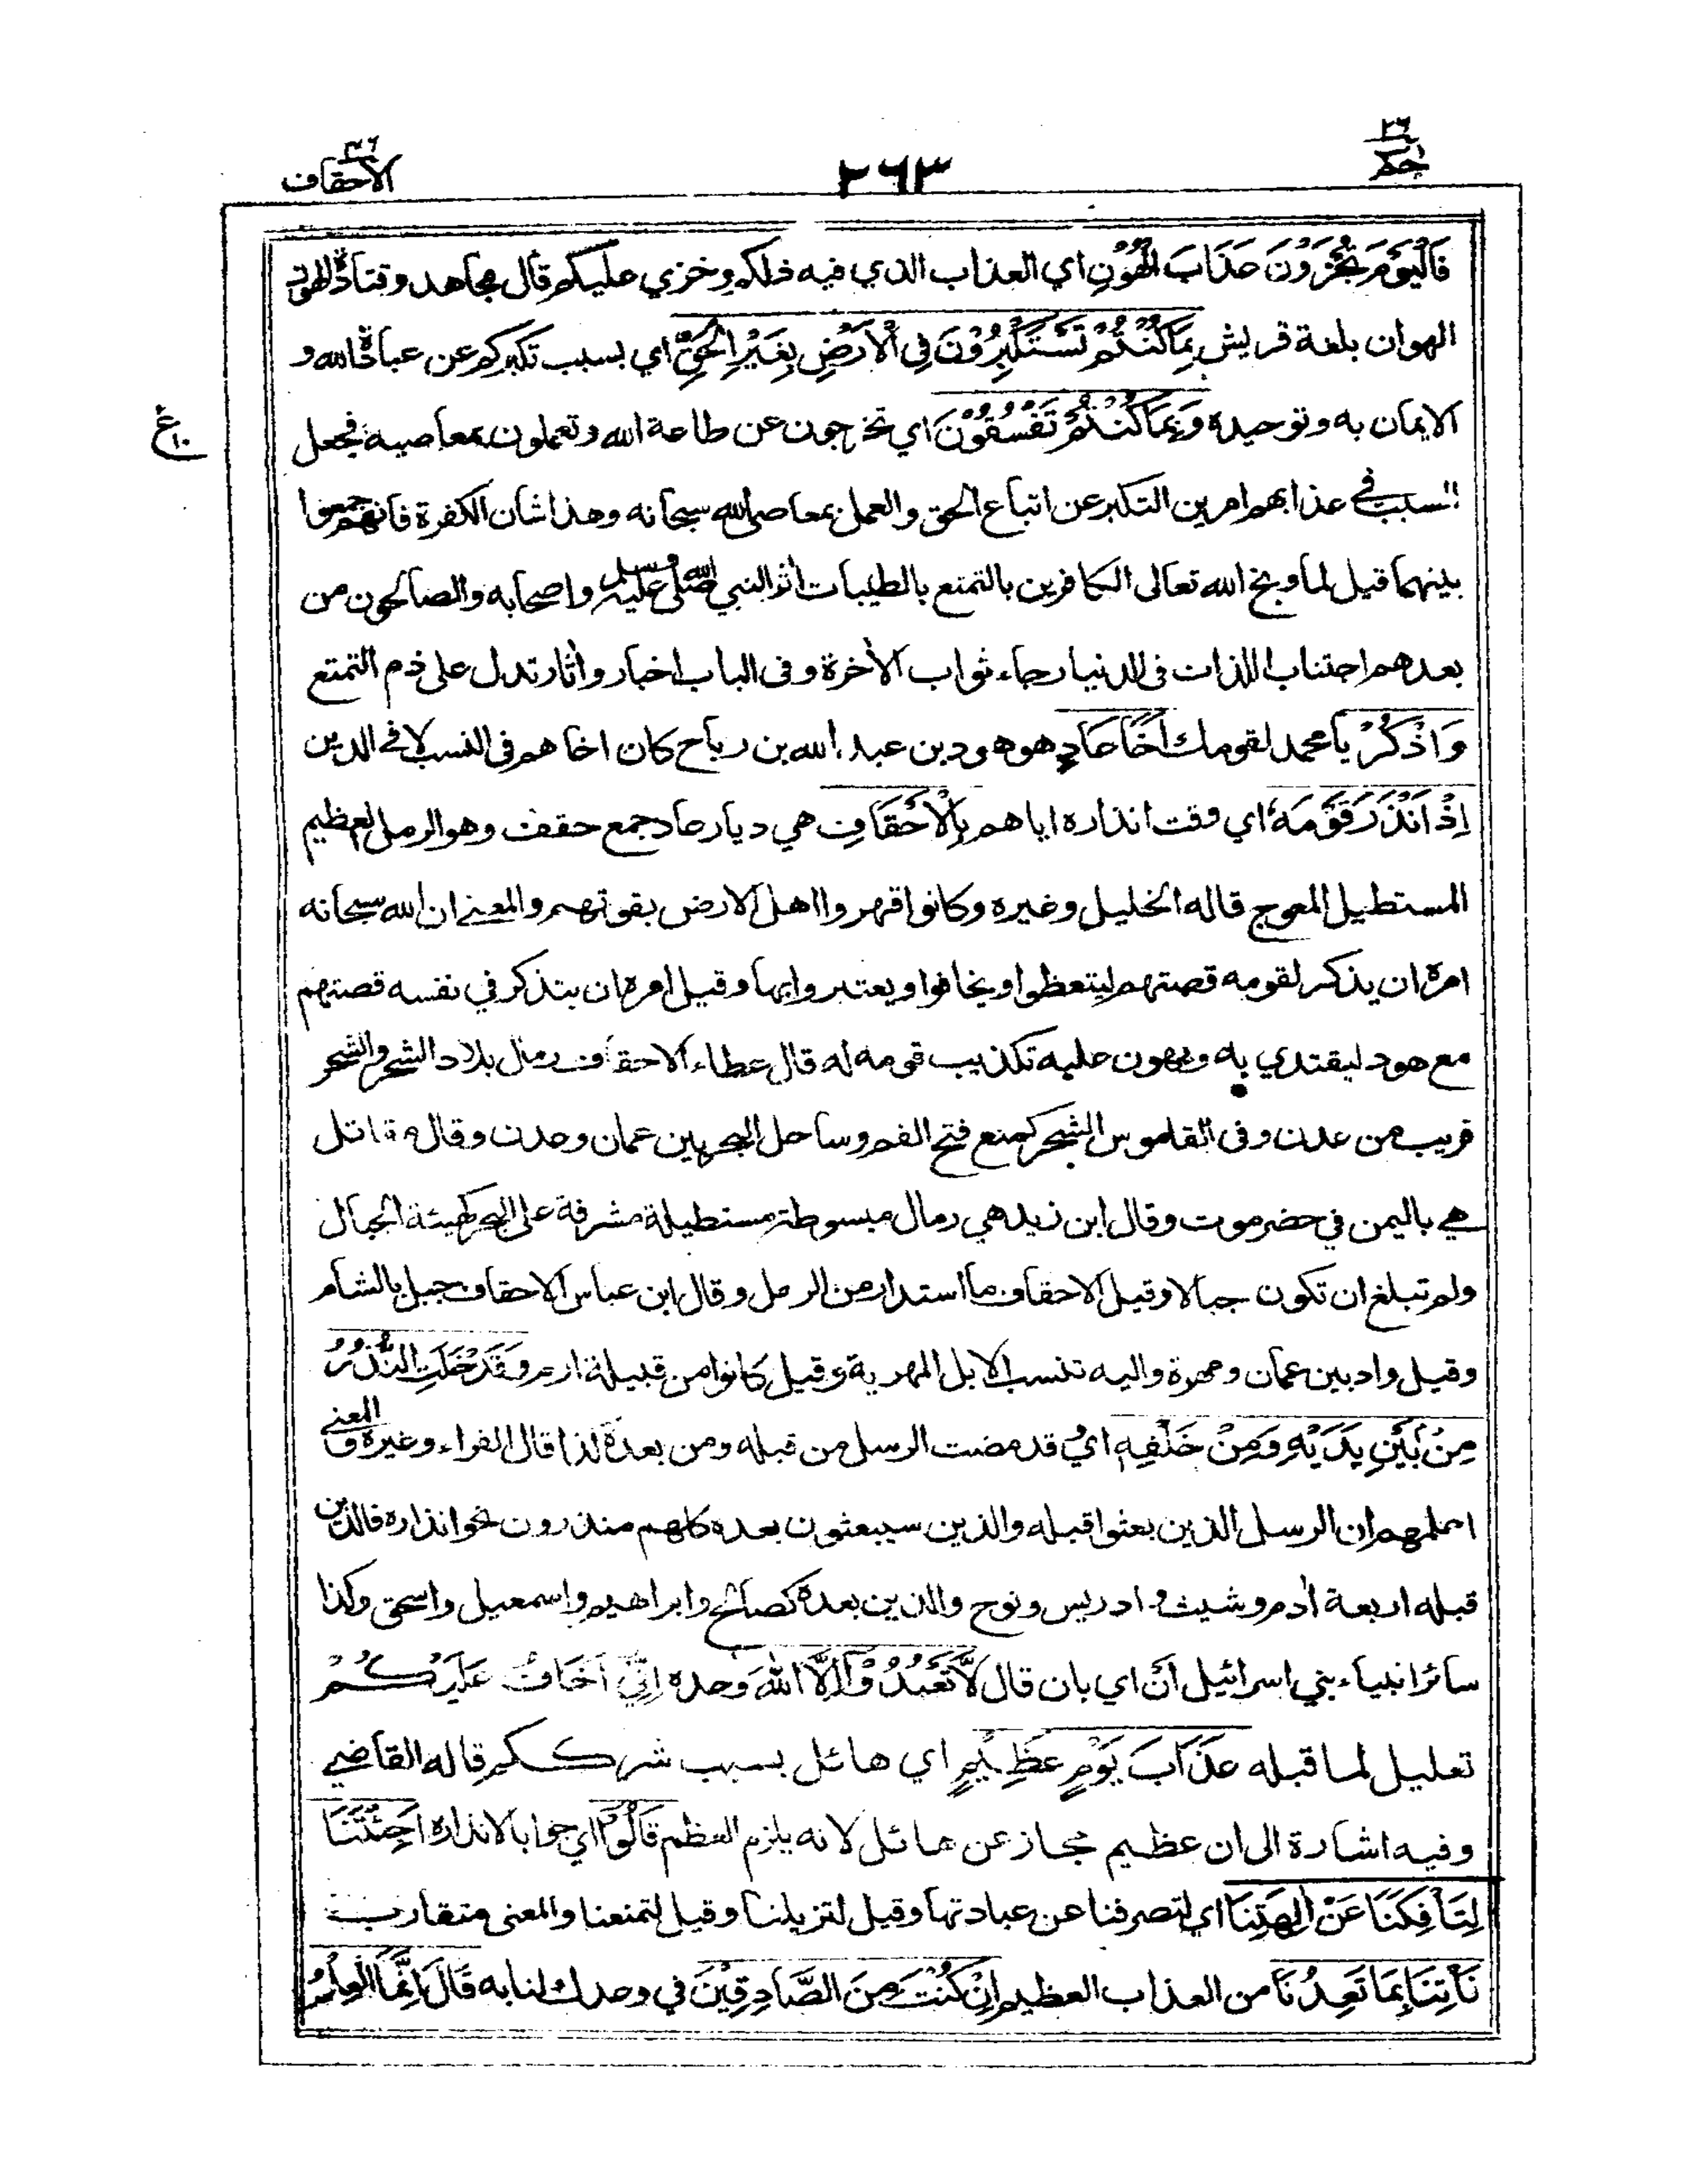 ٢٦
حم
٢٦٣
٤٦
الأحقاف
فَالْيَوْمَ تُجْزَوْنَ عَذَابَ الْهُوْنِ اي العذاب الذي فيه ذلكم وخزي عليكم قال مجاهد وقتادة الهون
الهوان بلغة قريش بِمَا كُنْتُمْ تَسْتَكْبِرُوْنَ فِي الْأَرْضِ بِغَيْرِ الْحَقِّ اي بسبب تكبركم عن عبادة الله و
الايمان به وتوحيده وَبِمَا كُنْتُمْ تَفْسُقُوْنَ اي تخرجون عن طاعة الله وتعملون بمعاصيه فجعل
ع
١٠
السبب في عذابهم امرين التكبر عن اتباع الحق والعمل بمعاصي الله سبحانه وهذا شان الكفرة فانهم جمعوا
بينهما قيل لما وبخ الله تعالى الكافرين بالتمتع بالطيبات أثر النبي صلى الله عليه وسلم واصحابه والصالحون من
بعدهم اجتناب اللذات في الدنيا رجاء ثواب الأخرة وفى الباب اخبار وأثار تدل على ذم التمتع
وَاذْكُرْ يا محمد لقومك أَخَا عَادٍ هو هود بن عبد الله بن رباح كان اخاهم فى النسب لا في الدين
اِذْ اَنْذَرَ قَوْمَهُ اي وقت انذاره اياهم بِالْأَحْقَافِ هي ديار عاد جمع حقف وهو الرمل العظيم
المستطيل المعوج قاله الخليل وغيره وكانوا قهروا اهل الارض بقوتهم والمعنى ان الله سبحانه
امره ان يذكر لقومه قصتهم ليتعظوا ويخافوا ويعتبروا بها وقيل امره ان يتذكر في نفسه قصتهم
مع هود ليقتدي به ويهون عليه تكذيب قومه له قال عطاء الاحقاف رمال بلاد الشحر والشحر
قريب من عدن وفى القاموس الشحر كمنع فتح الفم وساحل البحر بين عمان وعدن وقال مقاتل
هي باليمن في حضرموت وقال ابن زيد هي رمال مبسوطة مستطيلة مشرفة على البحر كهيئة الجبال
ولم تبلغ ان تكون جبالا وقيل الاحقاف ما استدار من الرمل وقال ابن عباس الاحقاف جبل بالشام
وقيل واد بين عمان ومهرة واليه تنسب الابل المهرية وقيل كانوا من قبيلة ارم وَقَدْ خَلَتِ النُّذُرُ
مِنْ بَيْنِ يَدَيْهِ وَمِنْ خَلْفِهِ اي قد مضت الرسل من قبله ومن بعده كذا قال الفراء وغيره والمعنى
اعلمهم ان الرسل الذين بعثوا قبله والذين سيبعثون بعده كلهم منذرون نحو انذاره فالذين
قبله اربعة أدم وشيث وادريس ونوح والذين بعده كصالح وابراهيم واسمعيل واسحق وكذا
سائر انبياء بني اسرائيل اَنْ اي بان قال لَّا تَعْبُدُوْا اِلَّا اللهَ وحده اِنِّيْ اَخَافُ عَلَيْكُمْ
تعليل لما قبله عَذَابَ يَوْمٍ عَظِيْمٍ اي هائل بسبب شرككم قاله القاضي
وفيه اشارة الى ان عظيم مجاز عن هائل لانه يلزم العظم قَالُوْا اي جوابا لانذاره اَجِئْتَنَا
لِتَأْفِكَنَا عَنْ اٰلِهَتِنَا اي لتصرفنا عن عبادتها وقيل لتزيلنا وقيل لتمنعنا والمعنى متقارب
فَأْتِنَا بِمَا تَعِدُنَا من العذاب العظيم اِنْ كُنْتَ مِنَ الصَّادِقِيْنَ في وعدك لنا به قَالَ اِنَّمَا الْعِلْمُ